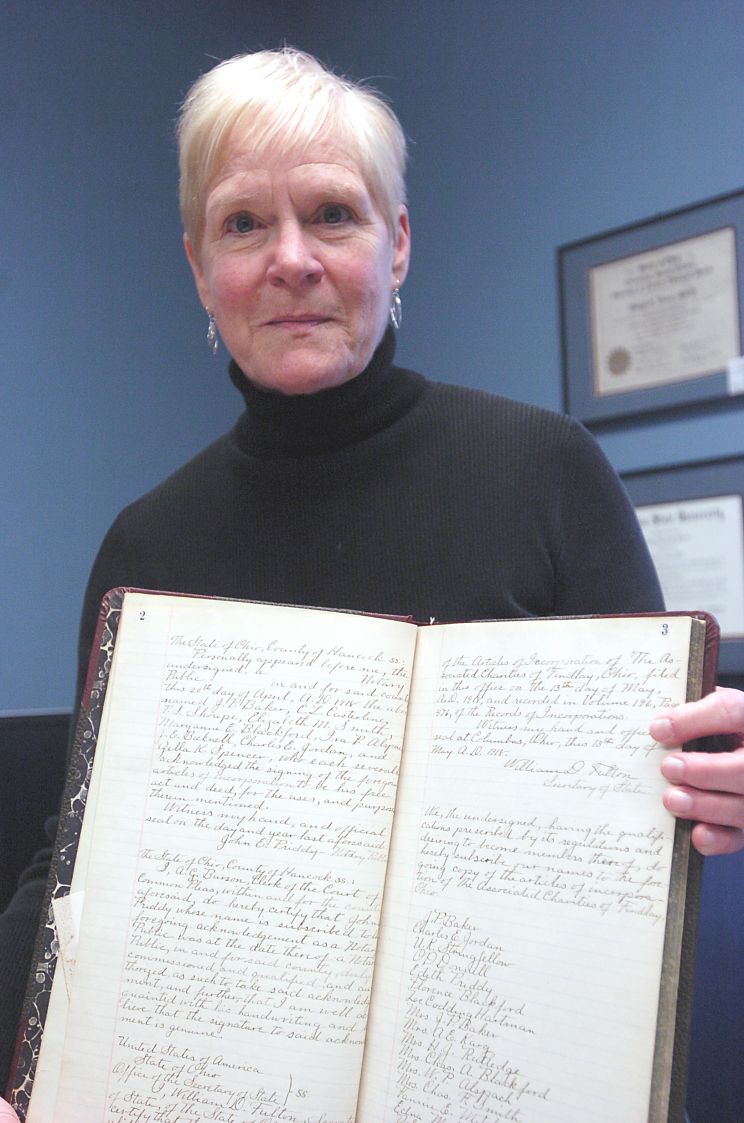 2
The State of Ohio, County of Hancock ss:
Personally appeared before me, the
undersigned, a Notary
Public in and for said county
this 20th day of April A.D. 1918 the above
named J. P. Baker, C. E. Casterline,
W. J. Shrape, Elizabeth M. Smith,
Marianne E. Blackford, Ira P. Alspac
E. Bicknell, Charles E. Jordan, and
K. Spencer, who each severally
acknowledged the signing of the foregoing
articles of incorporation to be his free
act and deed, for the uses, and purpose
therein mentioned.
Witness my hand, and official
seal on the day and year last aforesaid
John E. Priddy Notary Public
The State of Ohio, County of Hancock ss:
I, A. C. Burson, Clerk of the Court of
Common Pleas, within and for the county
aforesaid, do hereby certify that John
Priddy whose name is subscribed to
foregoing acknowledgement as a Notary
Public was at the date thereof a Notary
Public, in and for said county, duly
commissioned and qualified, and au
thorized, as such to take said acknowledg
ment, and further, that I am well ac
quainted with his handwriting, and
lieve that the signature to said acknow
ment is genuine.
United States of America
State of Ohio
Office of the Secretary of State } ss
I, William D. Fulton,
of State, of the State of
certify that
3
of the Articles of Incorporation of "The As-
sociated Charities of Findlay, Ohio, filed
in this office on the 13th day of May,
A.D. 1918, and recorded in Volume 196, Page
976, of the Records of Incorporations.
Witness my hand and official
seal at Columbus, Ohio, this 13th day of
May A.D. 1918.
William D. Fulton
Secretary of State
We, the undersigned, having the qualifi-
cations prescribed by its regulations and
desiring to become members thereof, do
hereby subscribe our names to the fore-
going copy of the articles of incorpora-
tion of the Associated Charities of Findlay
Ohio
J. P. Baker
Charles E. Jordan
W. F. Stringfellow
O. D. Donnell
Edith Priddy
Florence Blackford
Hartman
Mrs. J. P. Baker
Mrs. A. E. Karg
Mrs. Rutledge
Mrs. Chas. A. Blackford
Mrs. W. P. Alspach
Mrs. Chas. R. Smith
Nannie E.
Edna M.
State University